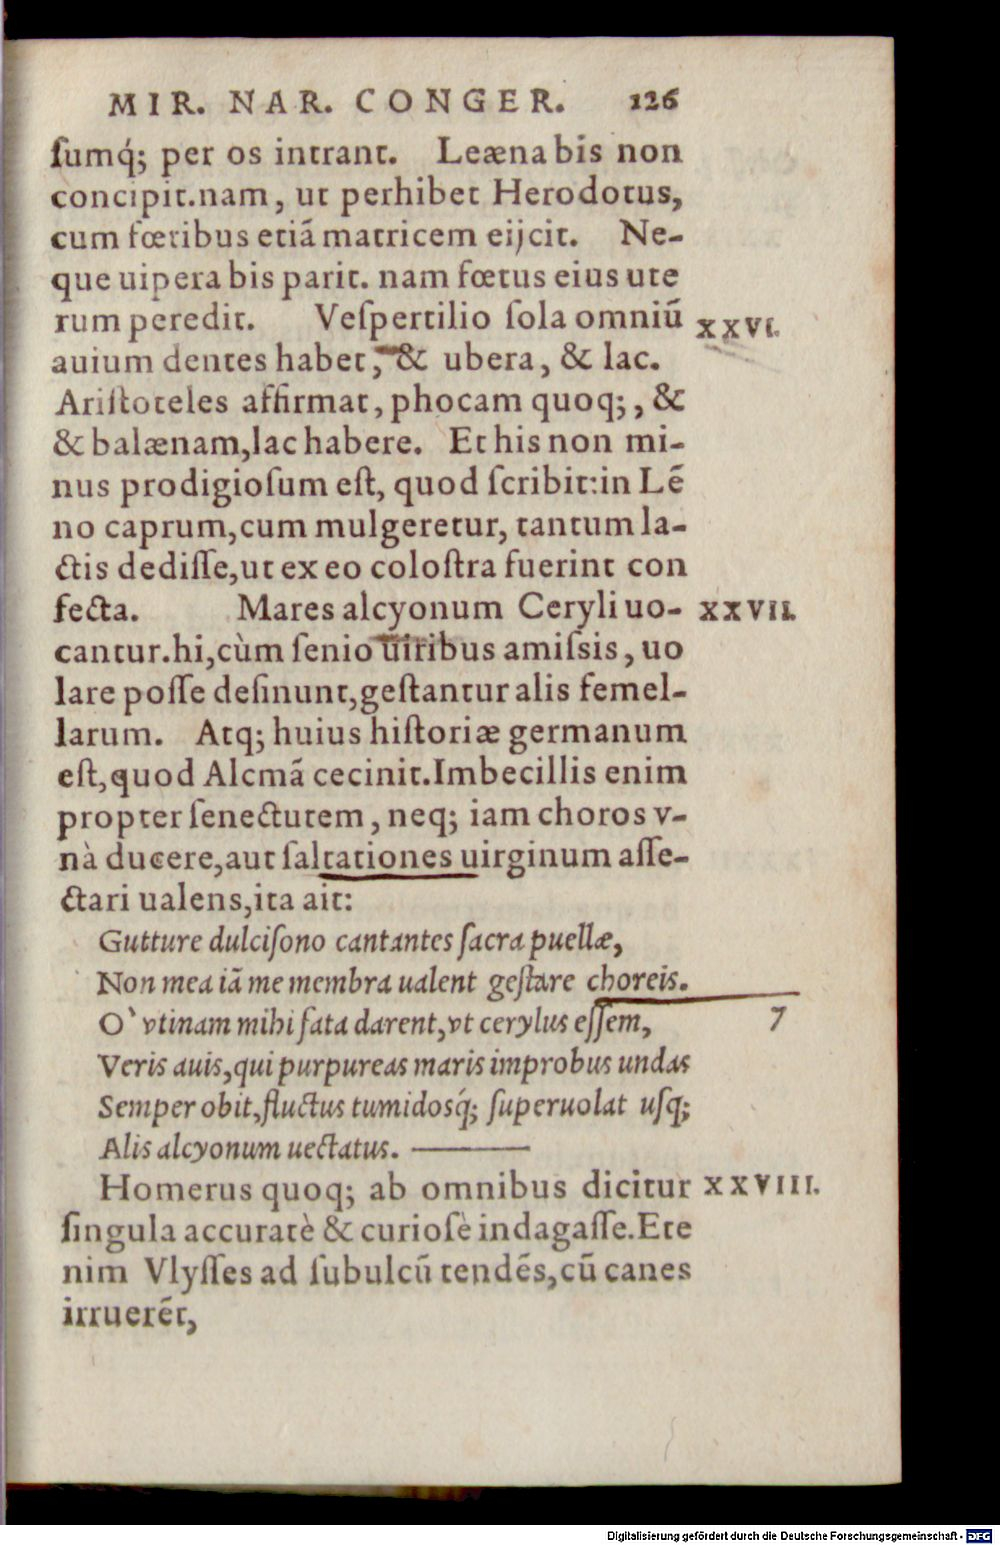 MIR. NAR. CONGER. 126
ſumq́; per os intrant. Leæna bis non
concipit.nam, ut perhibet Herodotus,
cum fœtibus etiã matricem eijcit. Ne-
que uipera bis parit. nam fœtus eius ute
rum peredit. Veſpertilio ſola omniũ XXVI.
auium dentes habet, & ubera, & lac.
Ariſtoteles affirmat, phocam quoq;, &
& balænam,lac habere. Et his non mi-
nus prodigioſum eſt, quod ſcribit:in Lẽ
no caprum,cum mulgeretur, tantum la-
ctis dediſſe,ut ex eo coloſtra fuerint con
fecta. Mares alcyonum Ceryli uo- XXVII.
cantur.hi,cùm ſenio uiribus amiſsis, uo
lare poſſe deſinunt,geſtantur alis femel-
larum. Atq; huius hiſtoriæ germanum
eſt,quod Alcmã cecinit.Imbecillis enim
propter ſenectutem, neq; iam choros v-
nà ducere,aut ſaltationes uirginum aſſe-
ctari ualens,ita ait:
Gutture dulciſono cantantes ſacra puellæ,
Non mea iã me membra ualent geſtare choreis.
O` vtinam mihi fata darent,vt cerylus eſſem, 7
Veris auis,qui purpureas maris improbus undas
Semper obit,fluctus tumidosq́; ſuperuolat uſq;
Alis alcyonum uectatus. ———
Homerus quoq; ab omnibus dicitur XXVIII.
ſingula accuratè & curioſè indagaſſe.Ete
nim Vlyſſes ad ſubulcũ tendẽs,cũ canes
irruerẽt,
Digitalisierung gefördert durch die Deutsche Forschungsgemeinschaft - DFG